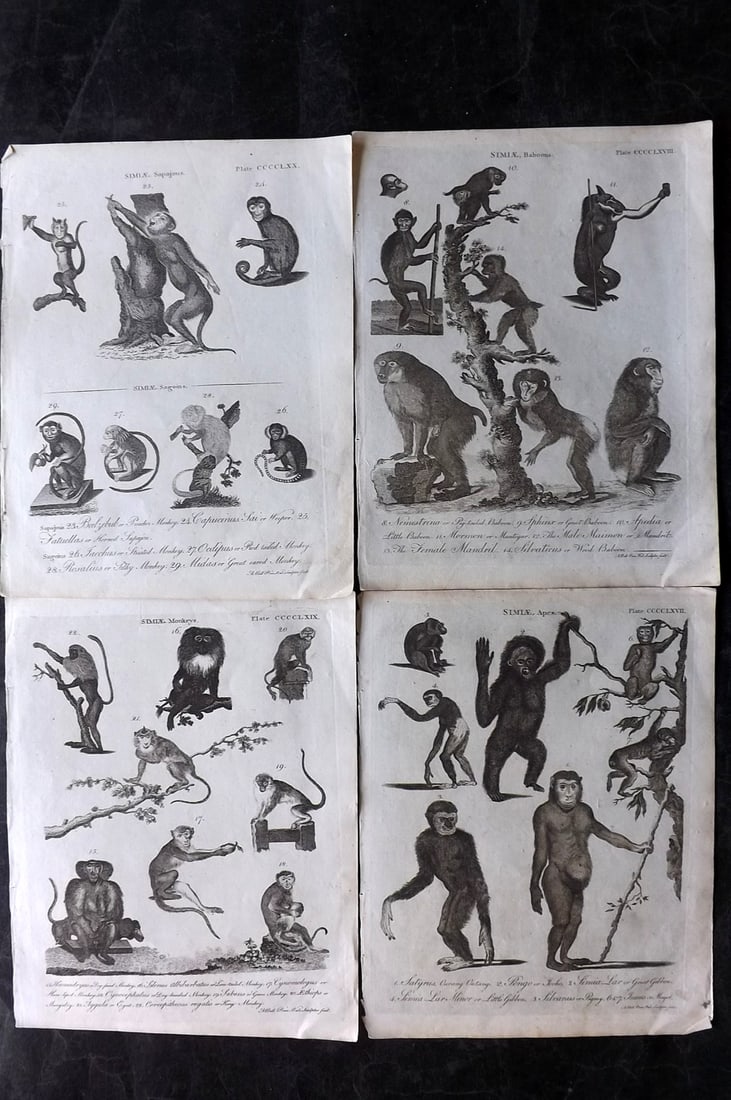 SIMIÆ, Sapajous. Plate CCCCLXX.
23. 24.
25.
SIMIÆ Sagoins.
29. 27. 28. 26.
Sapajous 23. Beelzebul or Preacher Monkey. 24. Capucinus Sai or Weeper. 25.
Fatuellas or Horned Sapajou.
Sagoins 26. Jacchus or Striated Monkey. 27. Oedipus or Red tailed Monkey.
28. Rosalius or Silky Monkey. 29. Midas or Great eared Monkey.
A. Bell Prin. Wal. Sculptor fecit.
SIMIÆ, Baboons. Plate CCCCLXVIII.
10.
8. 11.
14.
9. 13. 12.
8. Nemestrina or Pig-tailed Baboon. 9. Sphinx or Great Baboon. 10. Apedia or
Little Baboon. 11. Mormon or Mantiger. 12. The Male Maimon or Mandril.
13. The Female Mandril. 14. Silvaticus or Wood Baboon.
A. Bell Prin. Wal. Sculptor fecit.
SIMIÆ, Monkeys. Plate CCCCLXIX.
22. 16. 20.
21.
19.
17.
15. 18.
15. Hamadryas or Dog faced Monkey. 16. Silenus Albibarbatus or Lion tailed Monkey. 17. Cynomolgus or
Hare lip'd Monkey. 18. Cynocephalus or Dog headed Monkey. 19. Sabæus or Green Monkey. 20. Æthiops or
Mangabey. 21. Aygula or Egret. 22. Cercopithecus regalis or King Monkey.
A. Bell Prin. Wal. Sculptor fecit.
SIMIÆ, Apes. Plate CCCCLXVII.
3. 2. 6.
4.
1.
1. Satyrus, Ourang Outang. 2. Pongo or Jocko. 3. Simia Lar or Great Gibbon.
4. Simia Lar Minor or Little Gibbon. 5. Silvanus or Pigmy. 6 & 7. Inuus or Magot.
A. Bell Prin. Wal. Sculptor fecit.